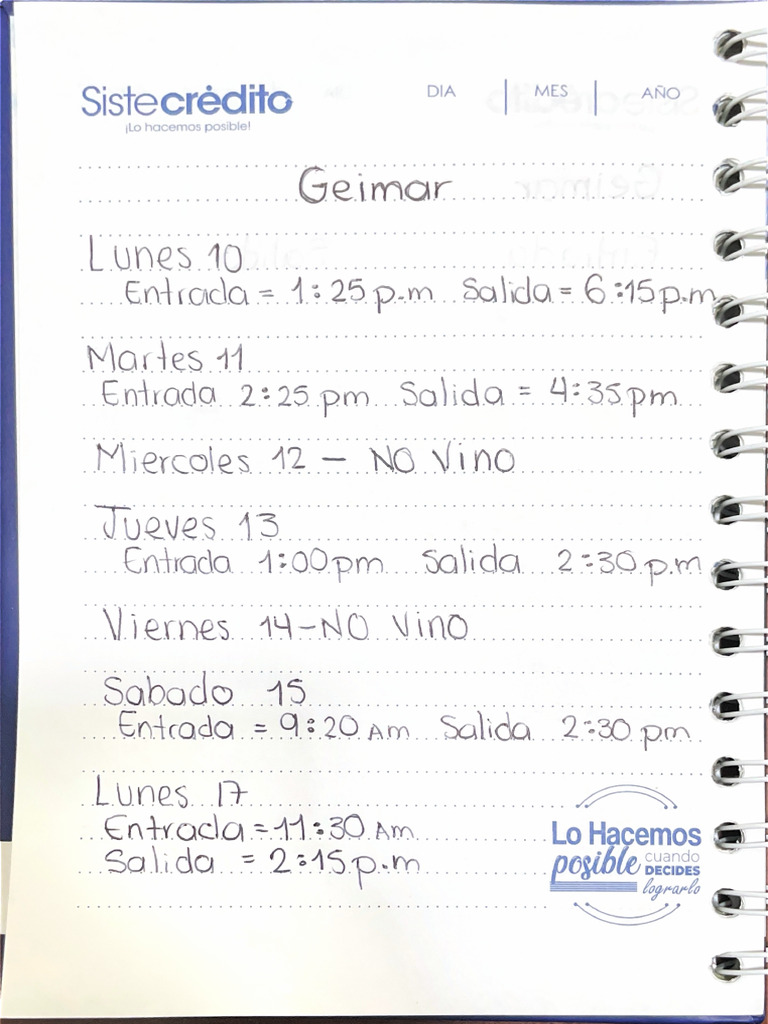 Sistecrédito
¡Lo hacemos posible!
DIA | MES | AÑO
Geimar
Lunes 10
Entrada = 1:25 p.m Salida = 6:15 p.m
Martes 11
Entrada 2:25 pm Salida = 4:35 pm
Miercoles 12 - NO Vino
Jueves 13
Entrada 1:00 pm Salida 2:30 p.m
Viernes 14 - NO Vino
Sabado 15
Entrada = 9:20 Am Salida 2:30 pm
Lunes 17
Entrada = 11:30 Am
Salida = 2:15 p.m
Lo Hacemos
posible cuando
DECIDES
lograrlo